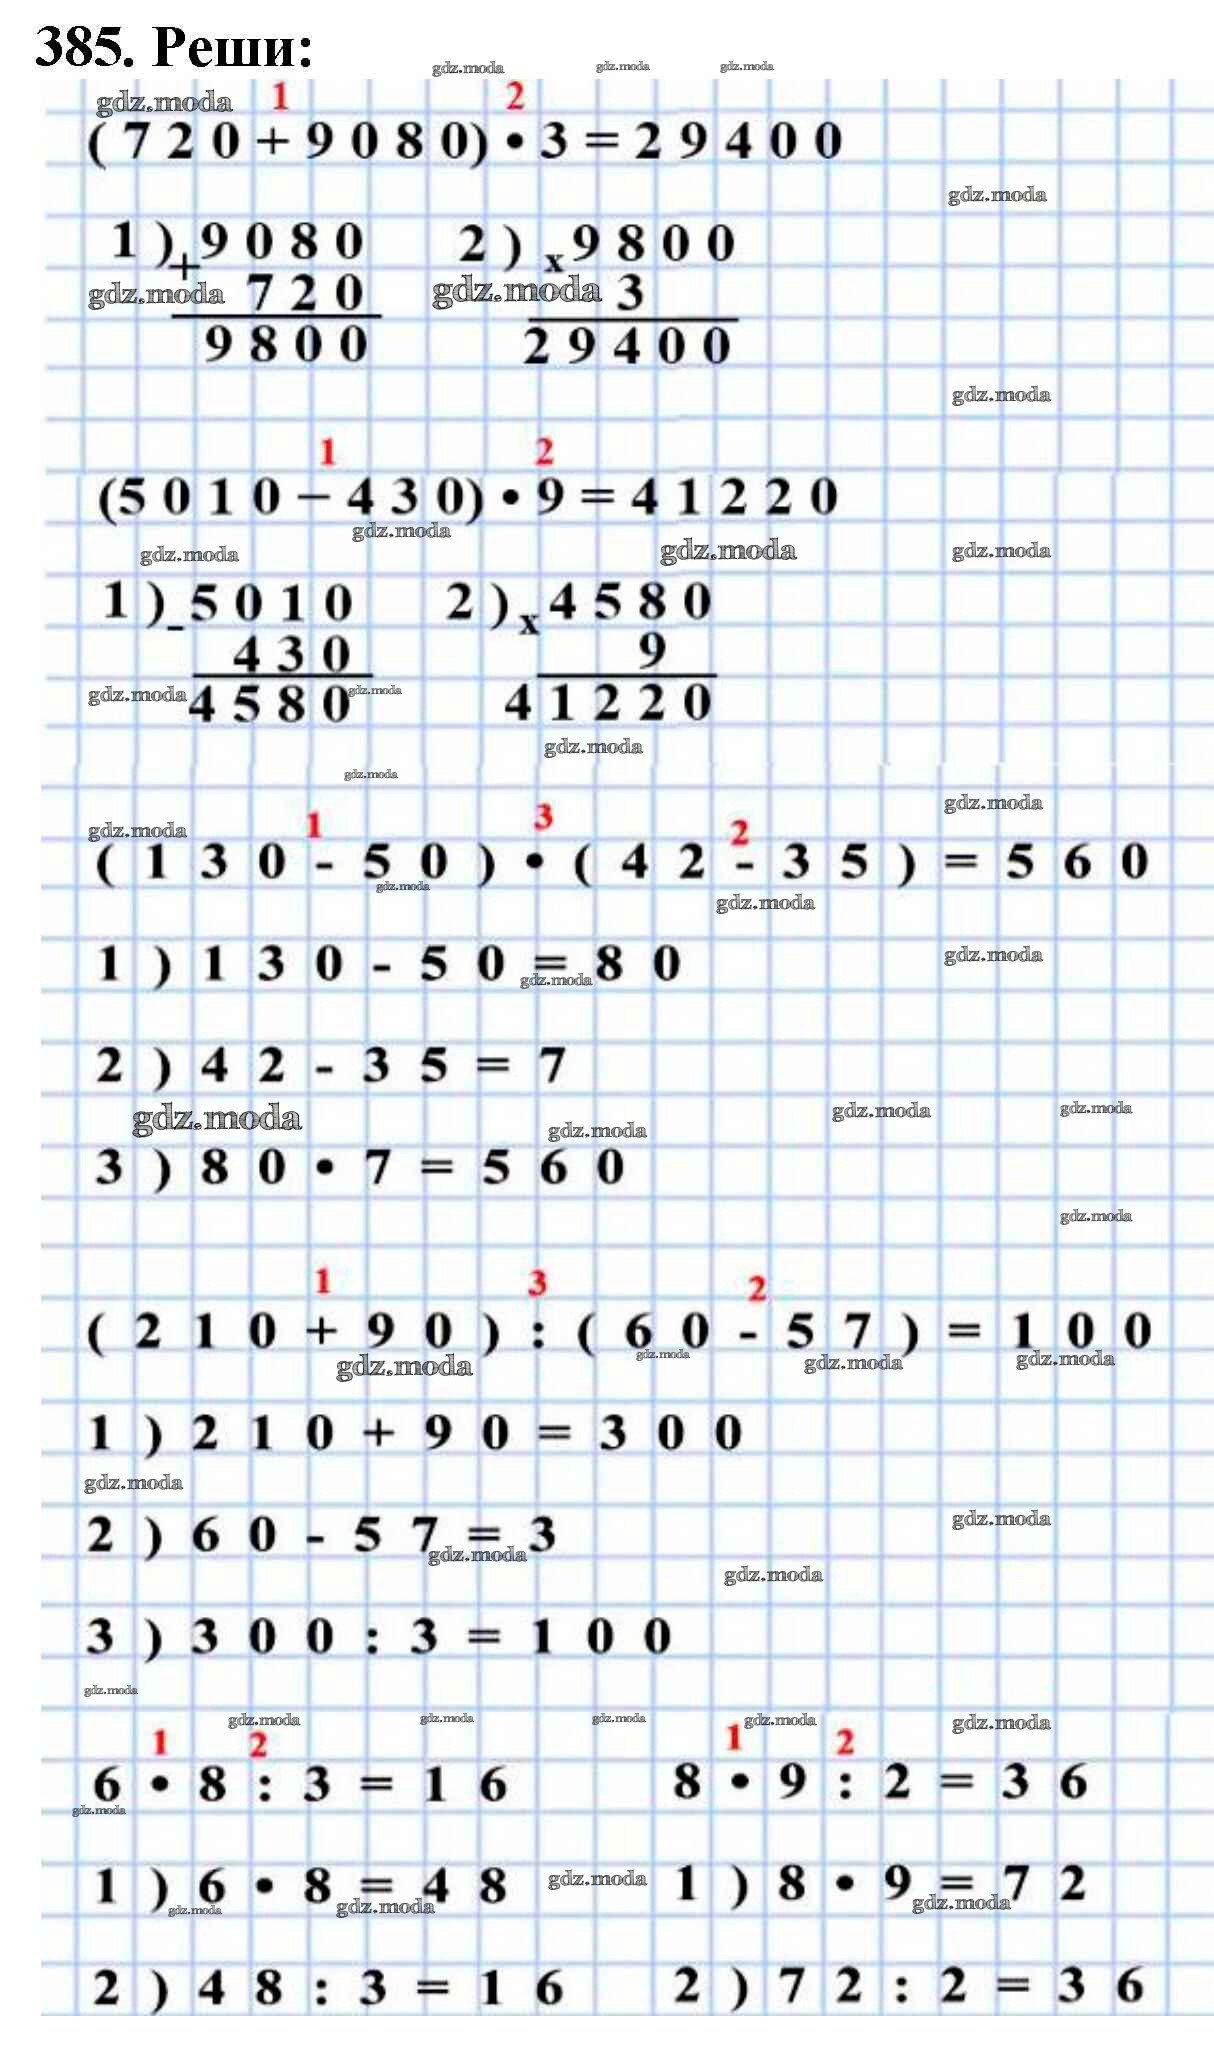 385. Реши:
gdz.moda gdz.moda gdz.moda
gdz.moda 1 2
(720+9080)•3=29400
gdz.moda
1)+9080 2)x9800
gdz.moda 720 gdz.moda 3
9800 29400
gdz.moda
1 2
(5010−430)•9=41220
gdz.moda
gdz.moda gdz.moda gdz.moda
1)-5010 2)x4580
430 9
gdz.moda 4580 gdz.moda 41220
gdz.moda
gdz.moda
gdz.moda
gdz.moda 1 3 2
(130-50)•(42-35)=560
gdz.moda
gdz.moda
1)130-50=80 gdz.moda
gdz.moda
2)42-35=7
gdz.moda gdz.moda gdz.moda
gdz.moda
3)80•7=560
gdz.moda
1 3 2
(210+90):(60-57)=100
gdz.moda gdz.moda gdz.moda gdz.moda
1)210+90=300
gdz.moda
2)60-57=3 gdz.moda
gdz.moda
gdz.moda
3)300:3=100
gdz.moda
gdz.moda gdz.moda gdz.moda gdz.moda gdz.moda
1 2 1 2
6•8:3=16 8•9:2=36
gdz.moda
1)6•8=48 gdz.moda 1)8•9=72
gdz.moda gdz.moda gdz.moda
2)48:3=16 2)72:2=36